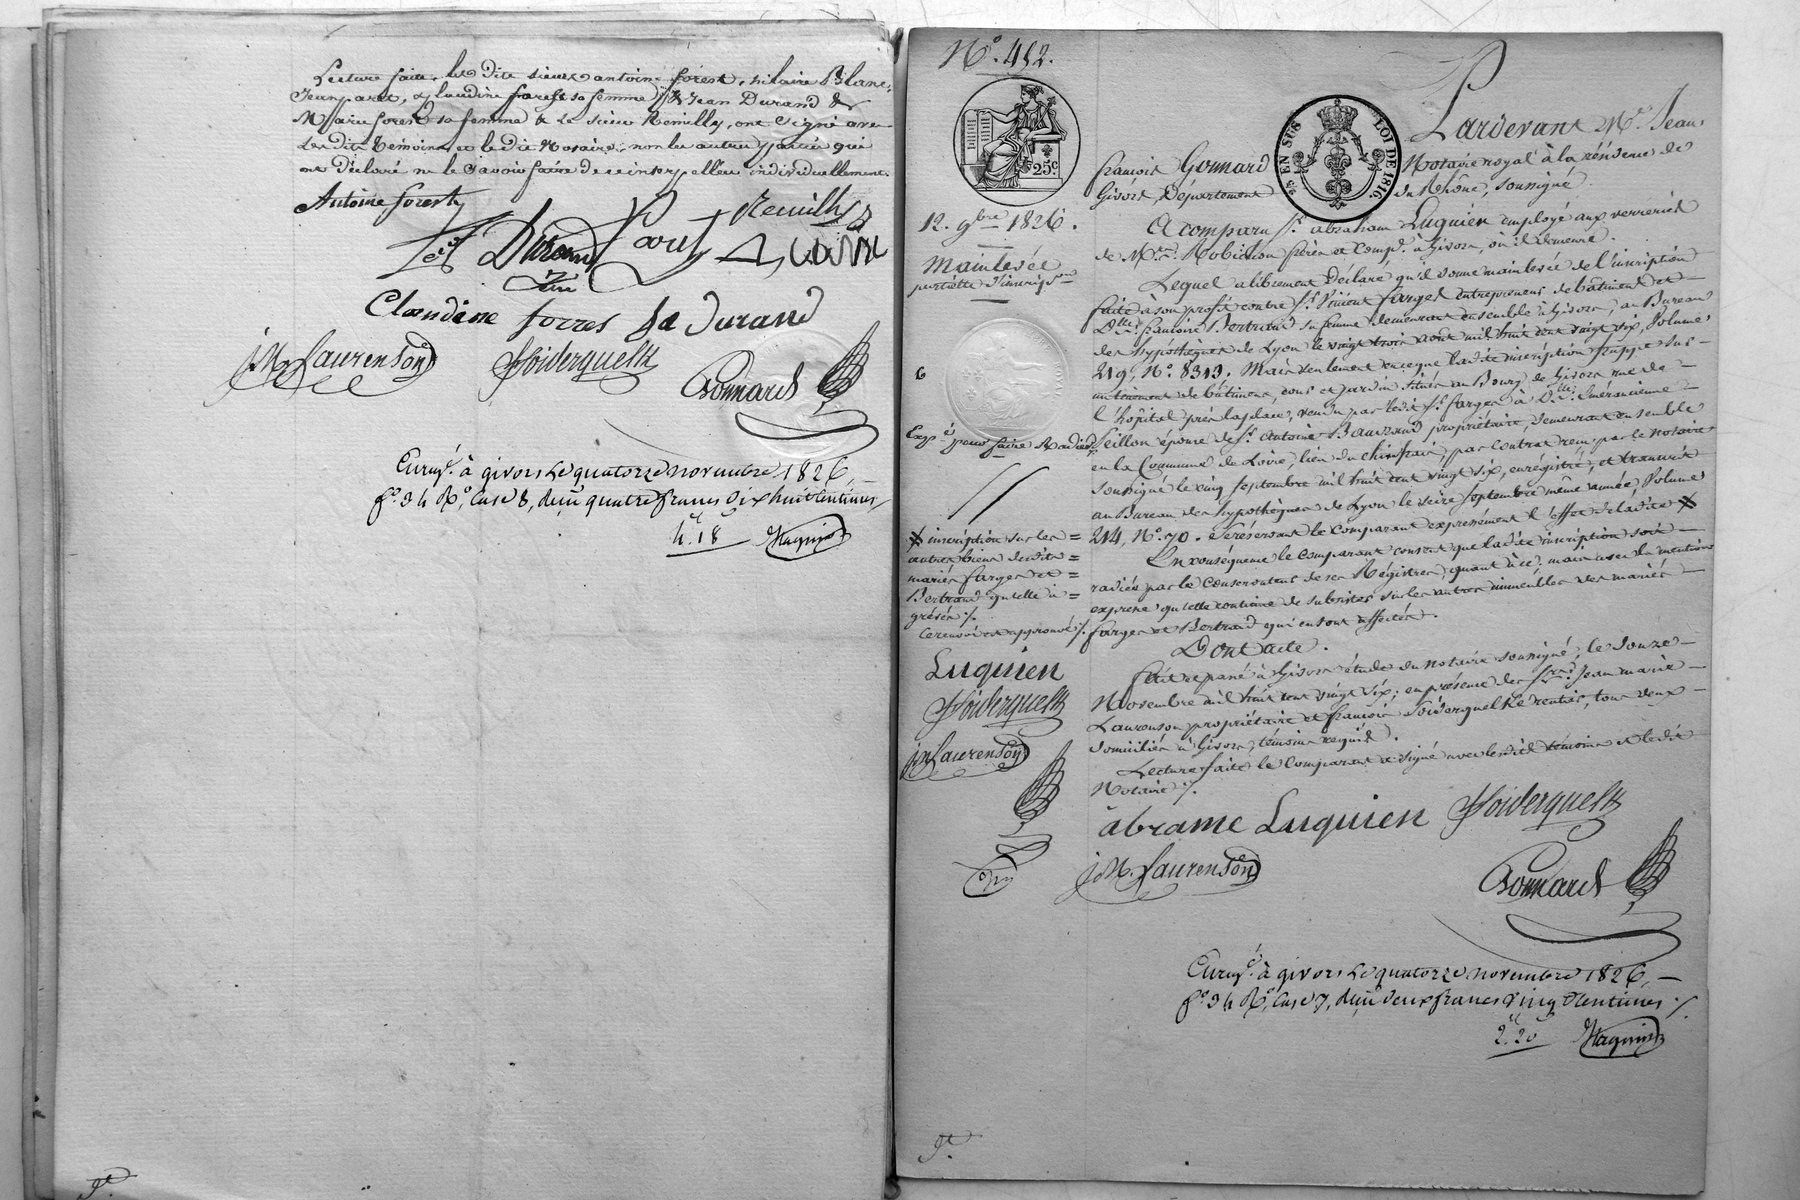 Lecture faite, les dits sieurs antoine forest, hilaire Blanc,
Jean paret, Claudine forest sa femme, Jean Durand &
Marie forest sa femme & le sieur Remilly, ont signé avec
les dits témoins et le dit Notaire; non les autres parties qui
ont déclaré ne le savoir faire de ce interpellées individuellement.
Antoine forest
Remilly
Durand
Paret
Blanc
Claudine forres fe Durand
j M Laurenson
fSoiderquelk
Gonnard
Enregé. à givors le quatorze novembre 1826,
fo. 94 Ro, Case 8, reçu quatre francs dix huit centimes
4. 18
No. 452.
25c
25 EN SUS
LOI DE 1816
Pardevant Me. Jean
françois Gonnard Notaire royal à la résidence de
Givors, Département du Rhône, soussigné
A comparu Sr. abraham Luquien employé aux verreries
de MM. Robichon frères et Comp. à Givors, où il demeure.
Lequel a librement Déclaré qu'il donne mainlevée de l'inscription
faite à son profit contre Sr. Vincent farges entrepreneur de bâtiment et
Dlle. françoise Bertrand sa femme demeurant ensemble à Givors, au Bureau
des hypothèques de Lyon le vingt trois aout mil huit cent vingt six, Volume
219, No. 8313. Mais seulement en ce que ladite inscription frappe sur
un tènement de bâtiment, cour et jardin situés au Bourg de Givors rue de
l'hôpital près la place, vendu par ledit Sr. farges à Dlle.
Seillon épouse de Sr. Antoine propriétaire demeurant ensemble
en la Commune de Loire, lieu du par contrat reçu par le Notaire
soussigné le cinq septembre mil huit cent vingt six, enrégistré, et transcrit
au Bureau des hypothèques de Lyon le seize septembre même année, Volume
214, No. 70. Se réservant le comparant expressément l'effet de ladite
En conséquence le comparant consent que ladite inscription soit
radiée par le Conservateur de ses Régistres, quant à ce; mais avec la mention
expresse qu'elle continue de subsister sur les autres immeubles des mariés
farges et Bertrand qui en sont affectés.
Dont acte.
fait et passé à Givors étude du notaire soussigné, le douze
Novembre mil huit cent vingt six; en présence des Srs. Jean marie
Laurenson propriétaire et françois Soiderquelk rentier, tous deux
domiciliés à Givors, témoins requis.
Lecture faite le Comparant a signé avec lesdits témoins et ledit
Notaire /.
abrame Luquien fSoiderquelk
j M. Laurenson
Gonnard
Enregé. à givors le quatorze novembre 1826,
fo. 94 Ro, Case 7, reçu deux francs vingt centimes /.
2. 20
12. 9bre 1826.
Mainlevée
partielle d'inscripon
6
inscription sur les
autres biens desdits
mariés farges et
Bertrand qu'elle a
grévés /.
Ce renvoi est approuvé /.
Luquien
fSoiderquelk
j M Laurenson